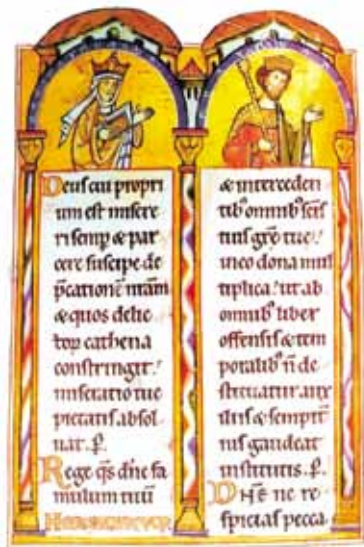 Deus cui propri
um est misere
ri semp & par
cere suscipe de
p̄cationē nr̄am
& quos delic
toꝝ cathena
constringit.
miseratio tue
pietatis absol
uat. p̄.
Rege qs̄ dn̄e fa
mulum tuū
& interceden
tibꝰ omnibꝰ sc̄is
tuis gr̄e tue
in eo dona mul
tiplica. ut ab
omnibꝰ liber
offensis & tem
poralibꝰ n̄ de
stituatur aux
iliis & sempit̄
nis gaudeat
institutis. p̄.
ne re
spicias pecca